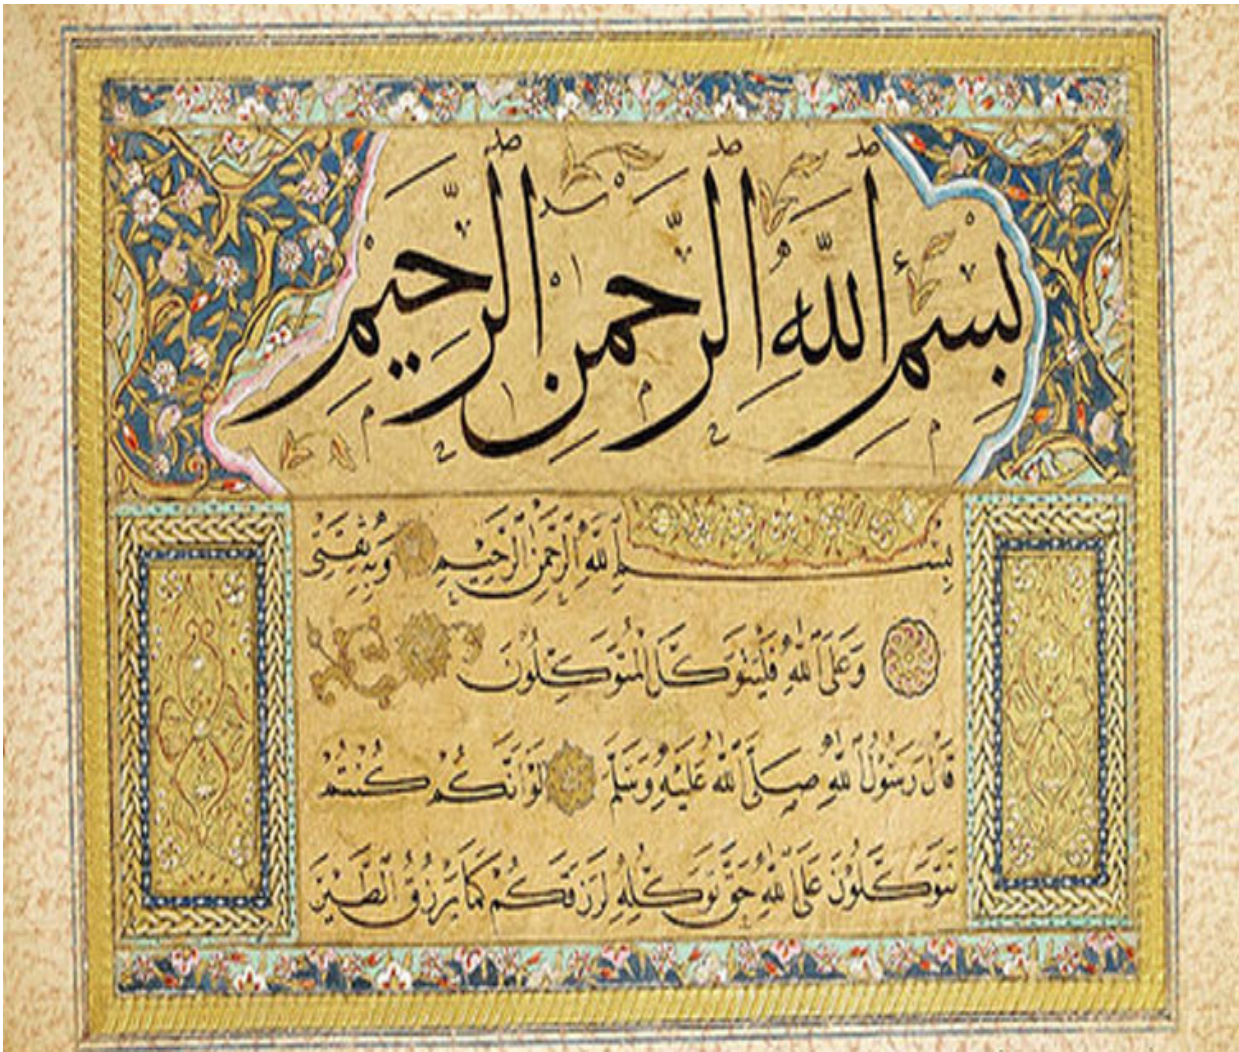 بِسْمِ اللَّهِ الرَّحْمٰنِ الرَّحِيمِ
بِسْمِ اللَّهِ الرَّحْمٰنِ الرَّحِيمِ وَبِهِ ثِقَتِي
وَعَلَى اللَّهِ فَلْيَتَوَكَّلِ الْمُتَوَكِّلُونَ
قَالَ رَسُولُ اللَّهِ صَلَّى اللَّهُ عَلَيْهِ وَسَلَّمَ لَوْ أَنَّكُمْ كُنْتُمْ
تَتَوَكَّلُونَ عَلَى اللَّهِ حَقَّ تَوَكُّلِهِ لَرَزَقَكُمْ كَمَا يَرْزُقُ الطَّيْرَ